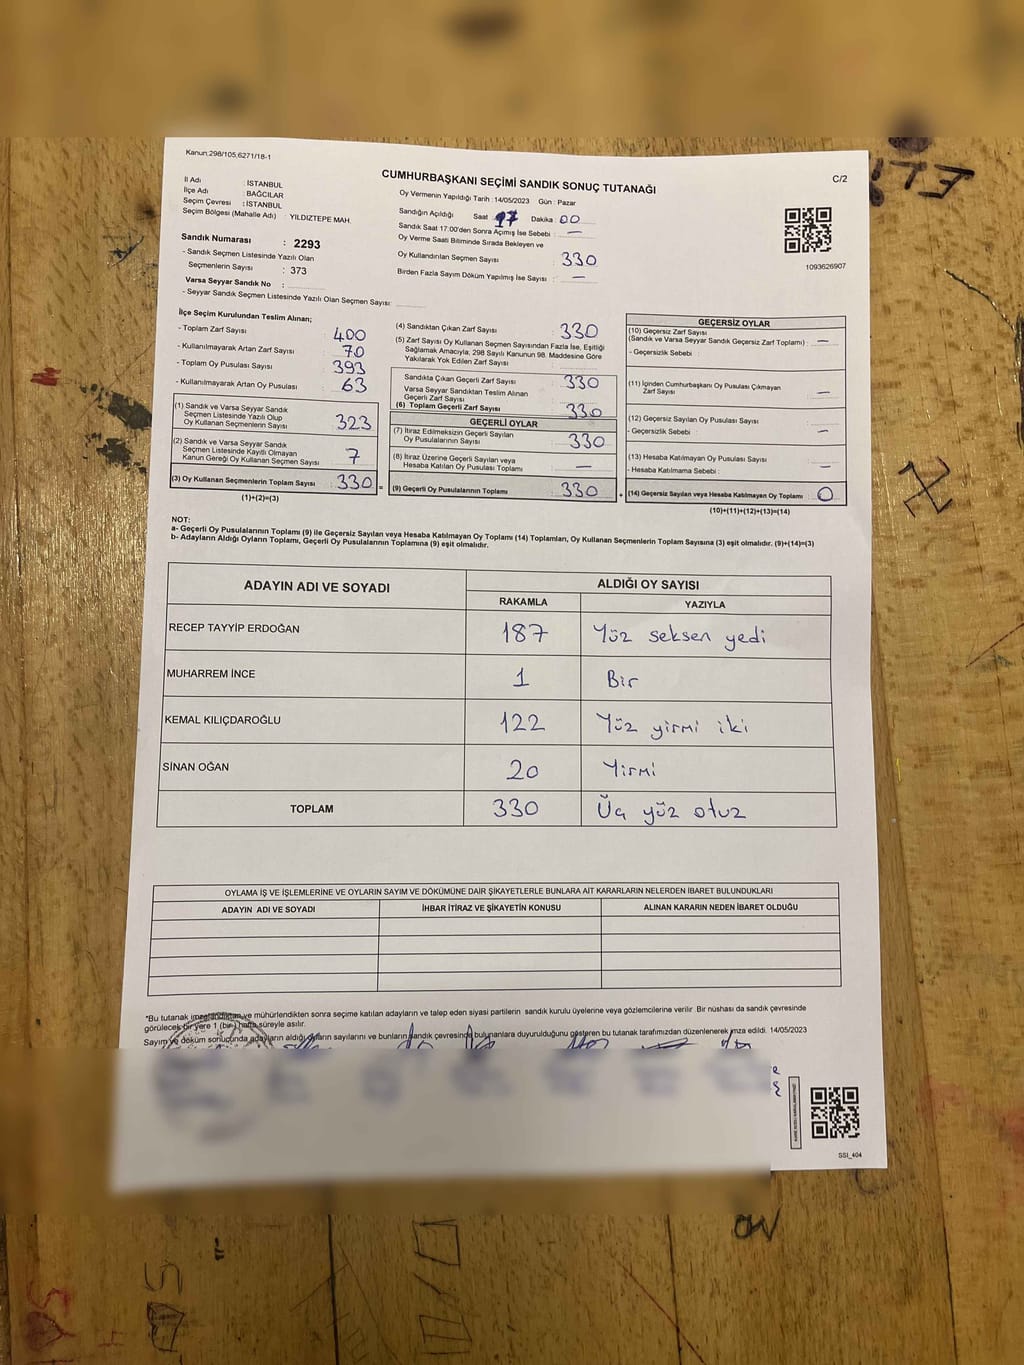 Kanun;298/105,6271/18-1
CUMHURBAŞKANI SEÇİMİ SANDIK SONUÇ TUTANAĞI
C/2
İl Adı : İSTANBUL
İlçe Adı : BAĞCILAR
Seçim Çevresi : İSTANBUL
Seçim Bölgesi (Mahalle Adı) : YILDIZTEPE MAH.
Sandık Numarası : 2293
- Sandık Seçmen Listesinde Yazılı Olan
Seçmenlerin Sayısı : 373
Varsa Seyyar Sandık No :
- Seyyar Sandık Seçmen Listesinde Yazılı Olan Seçmen Sayısı:
Oy Vermenin Yapıldığı Tarih :14/05/2023 Gün : Pazar
Sandığın Açıldığı Saat 17 Dakika : 00
Sandık Saat 17:00'den Sonra Açımış İse Sebebi : —
Oy Verme Saati Bitiminde Sırada Bekleyen ve
Oy Kullandırılan Seçmen Sayısı : 330
Birden Fazla Sayım Döküm Yapılmış İse Sayısı : —
1093626907
İlçe Seçim Kurulundan Teslim Alınan;
- Toplam Zarf Sayısı : 400
- Kullanılmayarak Artan Zarf Sayısı : 70
- Toplam Oy Pusulası Sayısı : 393
- Kullanılmayarak Artan Oy Pusulası : 63
(1) Sandık ve Varsa Seyyar Sandık
Seçmen Listesinde Yazılı Olup
Oy Kullanan Seçmenlerin Sayısı : 323
(2) Sandık ve Varsa Seyyar Sandık
Seçmen Listesinde Kayıtlı Olmayan
Kanun Gereği Oy Kullanan Seçmen Sayısı : 7
(3) Oy Kullanan Seçmenlerin Toplam Sayısı : 330
(1)+(2)=(3)
(4) Sandıktan Çıkan Zarf Sayısı : 330
(5) Zarf Sayısı Oy Kullanan Seçmen Sayısından Fazla İse, Eşitliği
Sağlamak Amacıyla; 298 Sayılı Kanunun 98. Maddesine Göre
Yakılarak Yok Edilen Zarf Sayısı :
Sandıkta Çıkan Geçerli Zarf Sayısı : 330
Varsa Seyyar Sandıktan Teslim Alınan
Geçerli Zarf Sayısı :
(6) Toplam Geçerli Zarf Sayısı : 330
GEÇERLİ OYLAR
(7) İtiraz Edilmeksizin Geçerli Sayılan
Oy Pusulalarının Sayısı : 330
(8) İtiraz Üzerine Geçerli Sayılan veya
Hesaba Katılan Oy Pusulası Toplamı : —
= (9) Geçerli Oy Pusulalarının Toplamı : 330
GEÇERSİZ OYLAR
(10) Geçersiz Zarf Sayısı
(Sandık ve Varsa Seyyar Sandık Geçersiz Zarf Toplamı) : —
- Geçersizlik Sebebi :
(11) İçinden Cumhurbaşkanı Oy Pusulası Çıkmayan
Zarf Sayısı : —
(12) Geçersiz Sayılan Oy Pusulası Sayısı :
- Geçersizlik Sebebi : —
(13) Hesaba Katılmayan Oy Pusulası Sayısı :
- Hesaba Katılmama Sebebi : —
+ (14) Geçersiz Sayılan veya Hesaba Katılmayan Oy Toplamı : 0
(10)+(11)+(12)+(13)=(14)
NOT:
a- Geçerli Oy Pusulalarının Toplamı (9) ile Geçersiz Sayılan veya Hesaba Katılmayan Oy Toplamı (14) Toplamları, Oy Kullanan Seçmenlerin Toplam Sayısına (3) eşit olmalıdır. (9)+(14)=(3)
b- Adayların Aldığı Oyların Toplamı, Geçerli Oy Pusulalarının Toplamına (9) eşit olmalıdır.
ADAYIN ADI VE SOYADI ALDIĞI OY SAYISI
RAKAMLA YAZIYLA
RECEP TAYYİP ERDOĞAN 187 Yüz seksen yedi
MUHARREM İNCE 1 Bir
KEMAL KILIÇDAROĞLU 122 Yüz yirmi iki
SİNAN OĞAN 20 Yirmi
TOPLAM 330 Üç yüz otuz
OYLAMA İŞ VE İŞLEMLERİNE VE OYLARIN SAYIM VE DÖKÜMÜNE DAİR ŞİKAYETLERLE BUNLARA AİT KARARLARIN NELERDEN İBARET BULUNDUKLARI
ADAYIN ADI VE SOYADI İHBAR İTİRAZ VE ŞİKAYETİN KONUSU ALINAN KARARIN NEDEN İBARET OLDUĞU
*Bu tutanak imzalandıktan ve mühürlendikten sonra seçime katılan adayların ve talep eden siyasi partilerin sandık kurulu üyelerine veya gözlemcilerine verilir. Bir nüshası da sandık çevresinde
görülecek bir yere 1 (bir) hafta süreyle asılır.
Sayım ve döküm sonucunda adayların aldığı oyların sayılarını ve bunların sandık çevresinde bulunanlara duyurulduğunu gösteren bu tutanak tarafımızdan düzenlenerek imza edildi. 14/05/2023
SSI_404